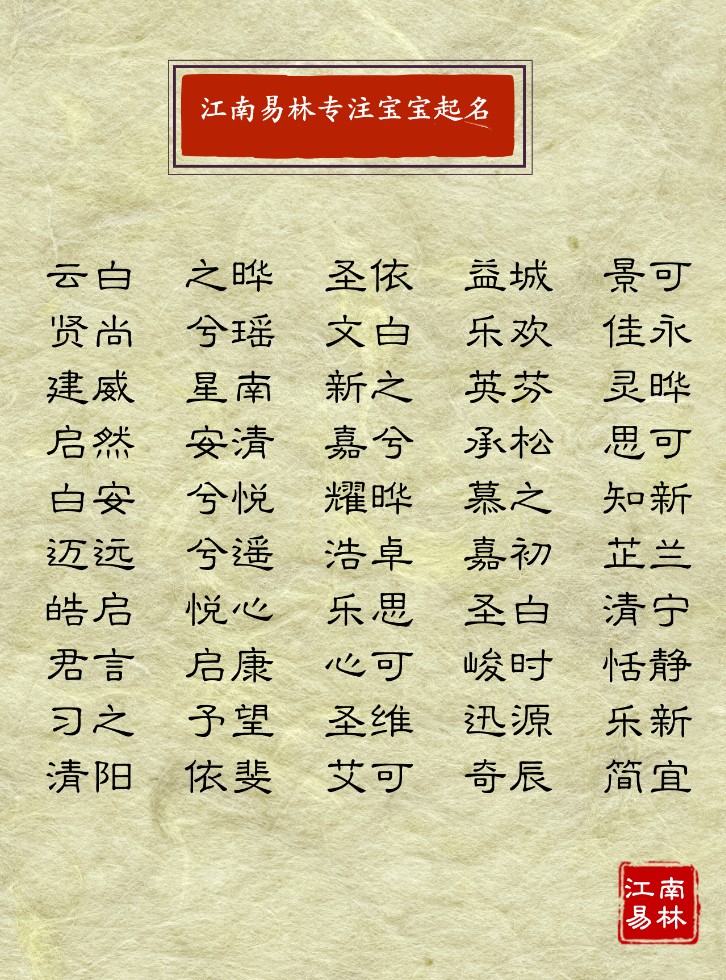 江南易林专注宝宝起名
云白 之晔 圣依 益城 景可
贤尚 兮瑶 文白 乐欢 佳永
建威 星南 新之 英芬 灵晔
启然 安清 嘉兮 承松 思可
白安 兮悦 耀晔 慕之 知新
迈远 兮遥 浩卓 嘉初 芷兰
皓启 悦心 乐思 圣白 清宁
君言 启康 心可 峻时 恬静
习之 予望 圣维 迅源 乐新
清阳 依斐 艾可 奇辰 简宜
江南
易林